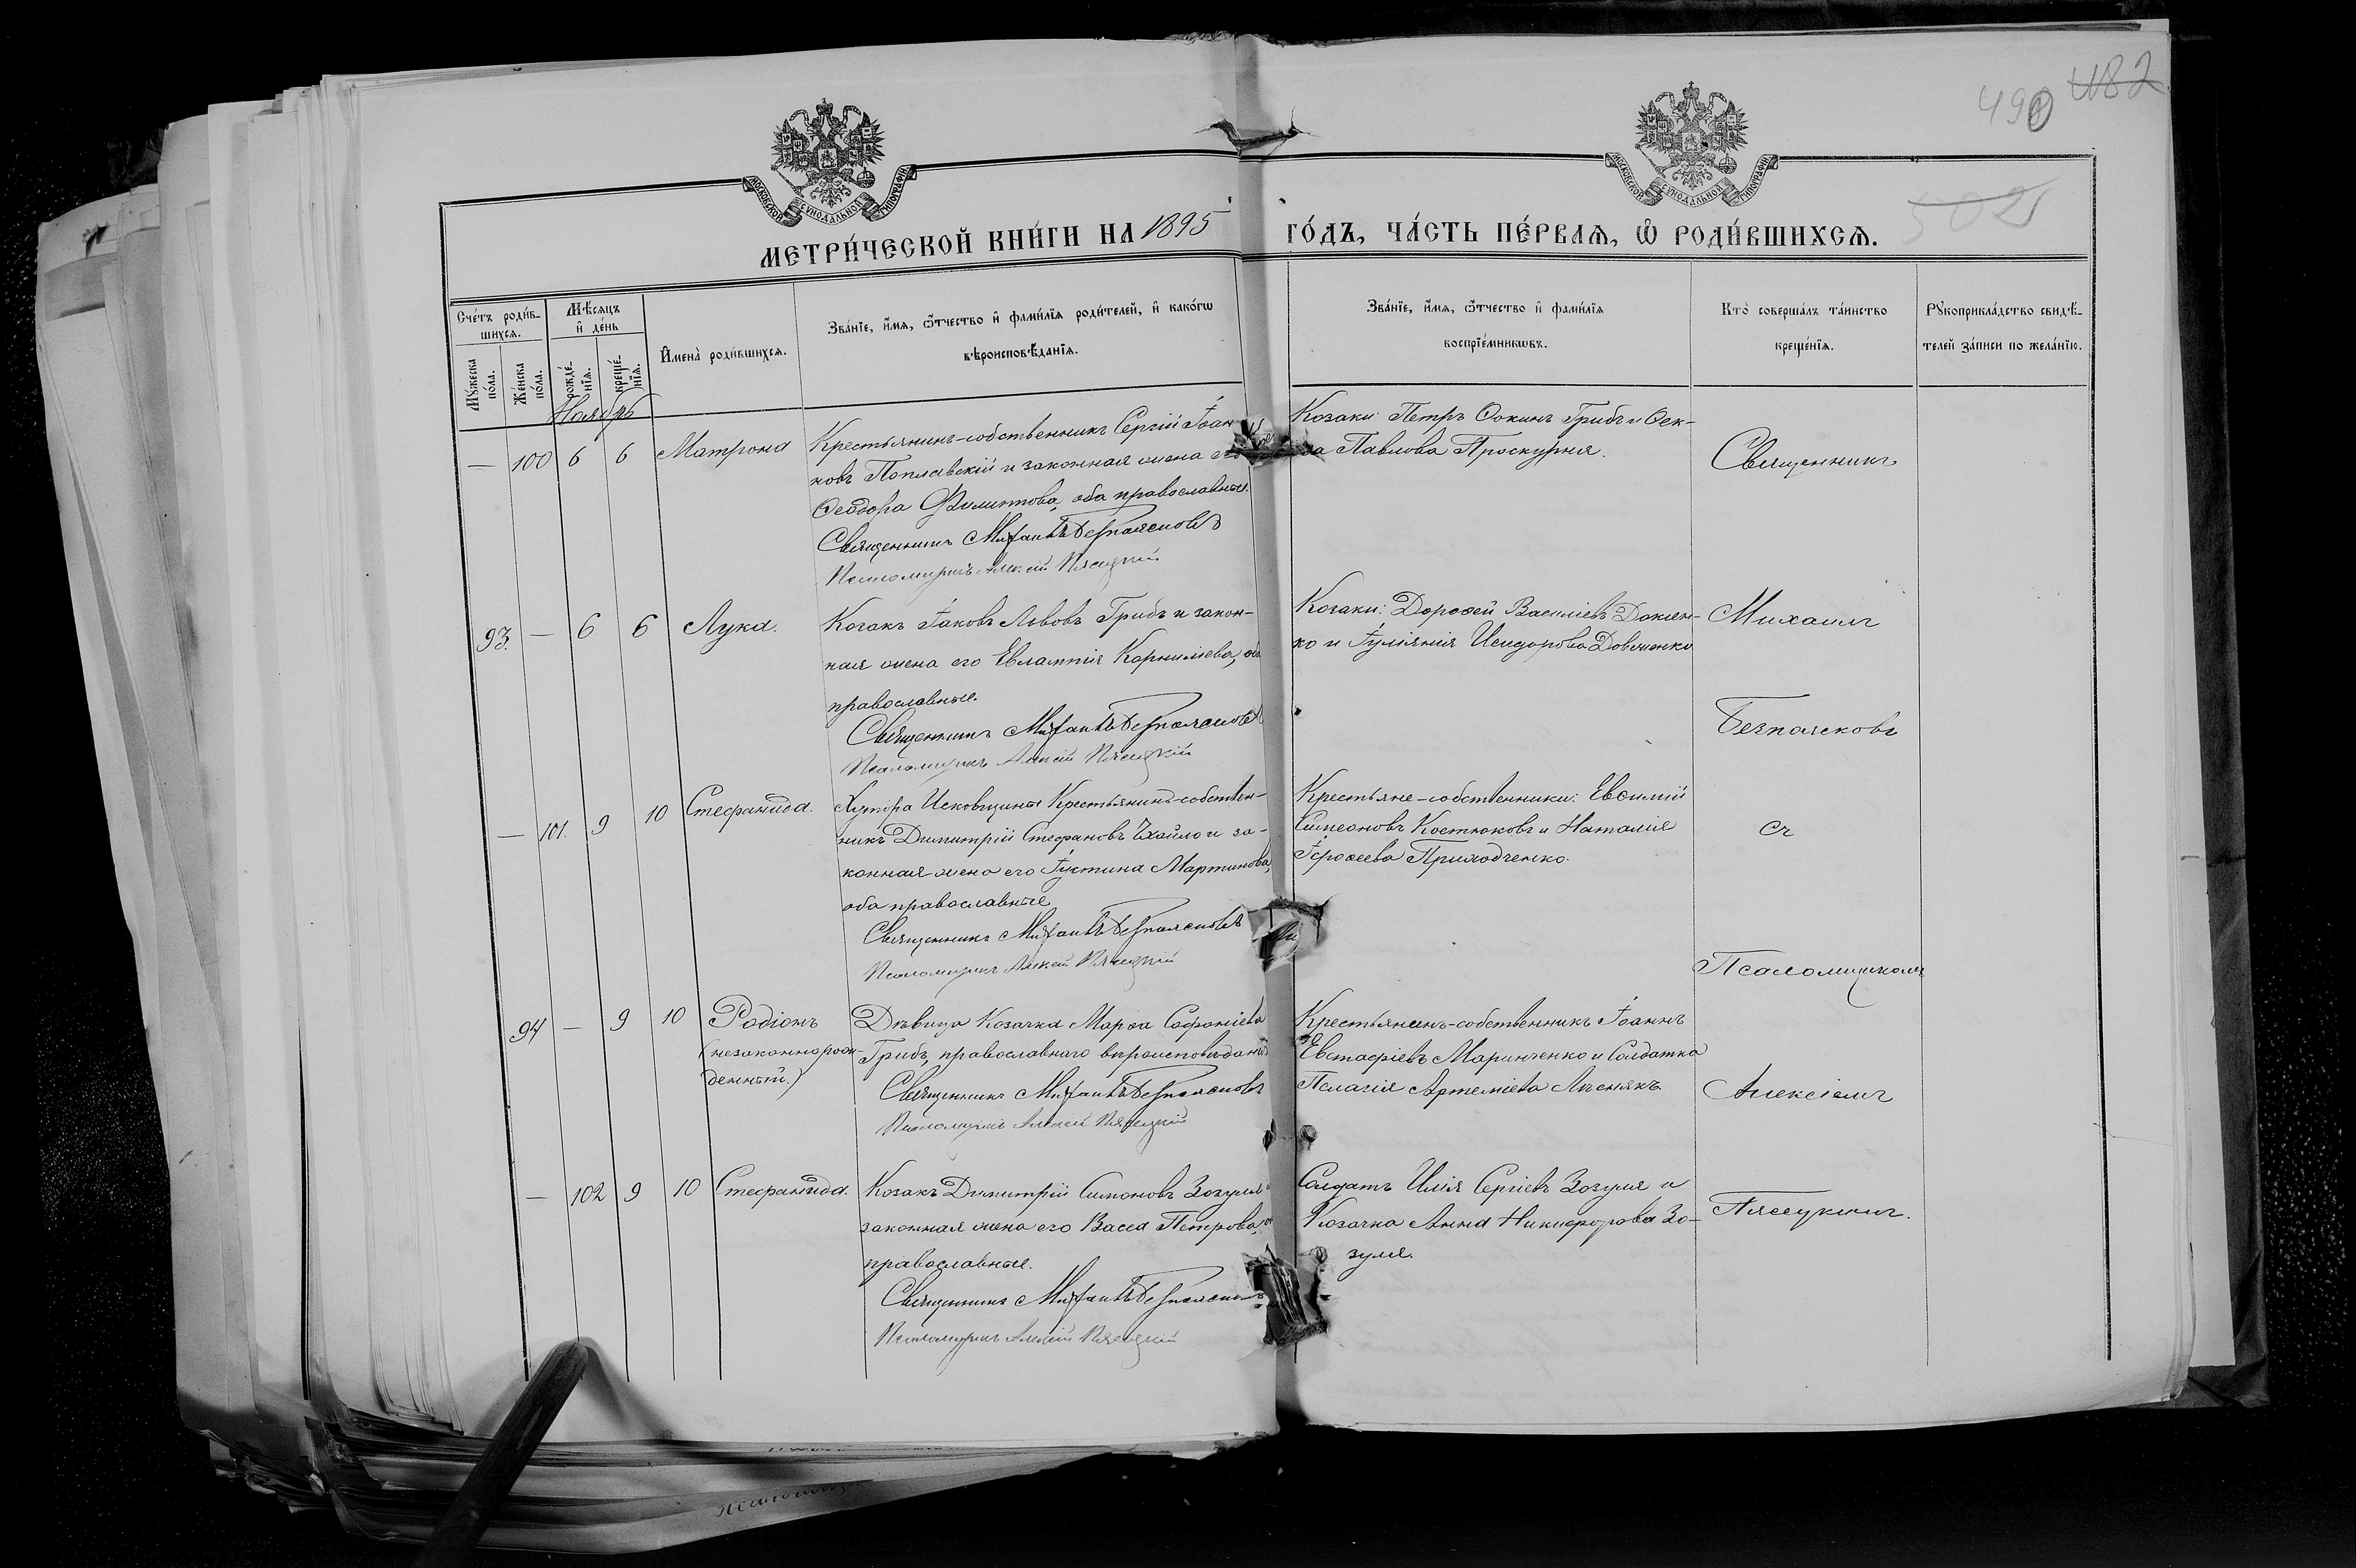 490 482
502
МОСКОВСКОЙ СѴНОДАЛЬНОЙ ТИПОГРАФІИ
МОСКОВСКОЙ СѴНОДАЛЬНОЙ ТИПОГРАФІИ
МЕТРИ́ЧЕСКОЙ КНИ́ГИ НА 1895 ГО́ДЪ, ЧА́СТЬ ПЕ́РВАѦ, Ѽ РОДИ́ВШИХСѦ.
Сче́тъ роди́в-
шихсѧ.
Мꙋ́жеска
по́ла.
Же́нска
по́ла.
Мѣ́сѧцъ
и҆ де́нь
рожде́-
нїѧ.
креще́-
нїѧ.
И҆мена̀ роди́вшихсѧ.
Зва́нїе, и҆́мѧ, ѻ҆́тчество и҆ фами́лїѧ роди́телей, и҆ како́гѡ
вѣроисповѣ́данїѧ.
Зва́нїе, и҆́мѧ, ѻ҆́тчество и҆ фами́лїѧ
воспрїе́мникѡвъ.
Кто̀ соверша́лъ та́инство
креще́нїѧ.
Рꙋкоприкла́дство свидѣ́-
телей за́писи по жела́нїю.
Ноябрь
— 100 6 6 Матрона
Крестьянинъ-собственникъ Сергій Іоан-
новъ Поплавскій и законная жена его
Ѳеодора Филиппова, оба православные.
Священникъ Михаилъ Безпоясковъ
Псаломщикъ Алексій Пясецкій
Козаки: Петръ Ѳокинъ Грибъ и Ѳек-
ла Павлова Проскурня.
93. — 6 6 Лука.
Козакъ Іаковъ Львовъ Грибъ и закон-
ная жена его Евлампія Корниліева, оба
православные.
Священникъ Михаилъ Безпоясковъ
Псаломщикъ Алексій Пясецкій
Козаки: Дороѳей Василіевъ Докиен-
ко и Іуліанія Исидорова Довженко
— 101. 9 10 Стефанида.
Хутора Исковщины Крестьянинъ-собствен-
никъ Димитрій Стефановъ Михайло и за-
конная жена его Іустина Мартинова,
оба православные
Священникъ Михаилъ Безпоясковъ
Псаломщикъ Алексій Пясецкій
Крестьяне-собственники: Евѳимій
Симеоновъ Костюковъ и Наталія
Іероѳеева Приходченко.
94 — 9 10 Родіонъ
(незаконнорож-
денный.)
Дѣвица Козачка Марѳа Софоніева
Грибъ, православнаго вѣроисповѣданія
Священникъ Михаилъ Безпоясковъ
Псаломщикъ Алексій Пясецкій
Крестьянинъ-собственникъ Іоаннъ
Евстафіевъ Маринченко и Солдатка
Пелагія Артеміева Лѣснякъ.
— 102 9 10 Стефанида.
Козакъ Димитрій Симоновъ Зозуля и
законная жена его Васса Петрова,
православные.
Священникъ Михаилъ Безпоясковъ
Псаломщикъ Алексій Пясецкій
Солдатъ Илія Сергіевъ Зозуля и
Козачка Анна Никифорова Зо-
зуля.
Священникъ
Михаилъ
Безпоясковъ
съ
Псаломщикомъ
Алексіемъ
Пясецкимъ.